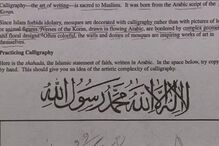 Calligraphy—the art of writing—is sacred to Muslims. It was born from the Arabic script of the
Koran.
Since Islam forbids idolatry, mosques are decorated with calligraphy rather than with pictures of
and animal figures. Verses of the Koran, drawn in flowing Arabic, are bordered by complex geometric
and floral designs. Often colorful, the walls and domes of mosques are inspiring works of art in
themselves.
Practicing Calligraphy
Here is the shahada, the Islamic statement of faith, written in Arabic. In the space below, try
by hand. This should give you an idea of the artistic complexity of calligraphy.
لا إله إلا الله محمد رسول الله